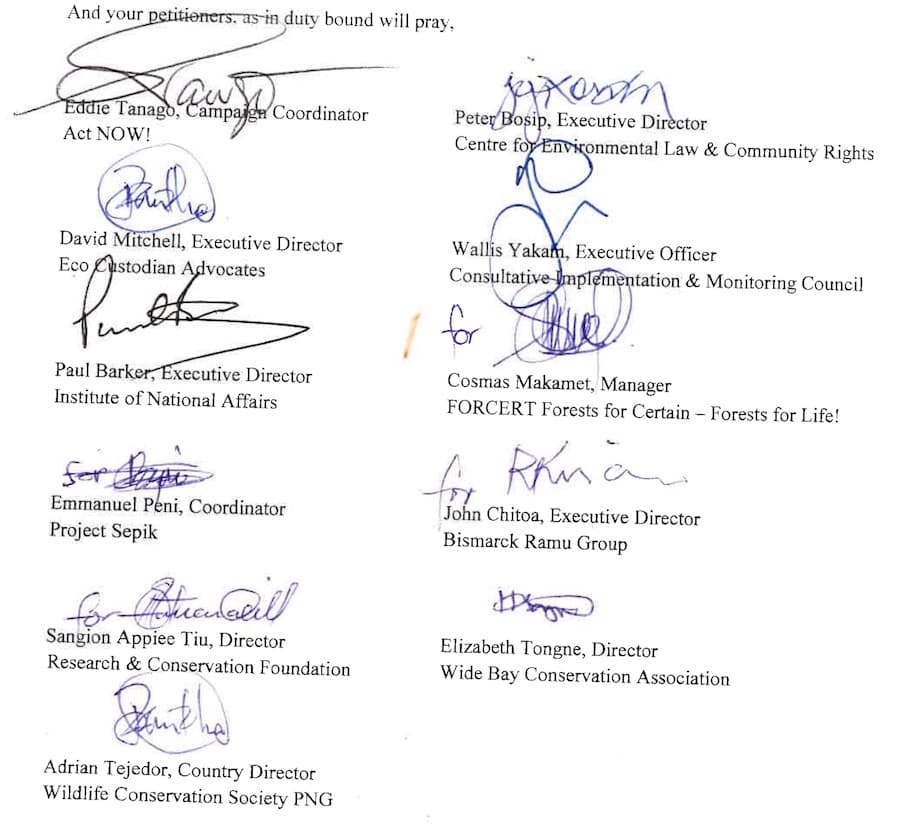 And your petitioners, as in duty bound will pray,
Eddie Tanago, Campaign Coordinator
Act NOW!
Peter Bosip, Executive Director
Centre for Environmental Law & Community Rights
David Mitchell, Executive Director
Eco Custodian Advocates
Wallis Yakam, Executive Officer
Consultative Implementation & Monitoring Council
for
Paul Barker, Executive Director
Institute of National Affairs
Cosmas Makamet, Manager
FORCERT Forests for Certain – Forests for Life!
for
Emmanuel Peni, Coordinator
Project Sepik
for
John Chitoa, Executive Director
Bismarck Ramu Group
for
Sangion Appiee Tiu, Director
Research & Conservation Foundation
Elizabeth Tongne, Director
Wide Bay Conservation Association
Adrian Tejedor, Country Director
Wildlife Conservation Society PNG